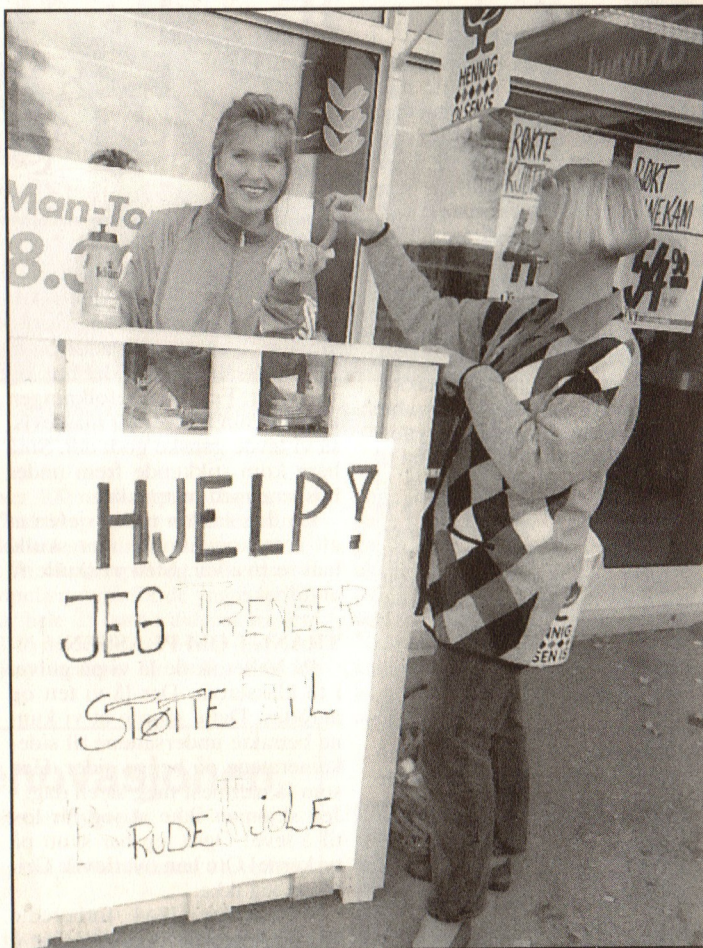 HENNIG
OLSEN IS
RØKTE
RØKT
NEKAM
54 90
Man-To
8.3
HJELP!
JEG TRENGER
STØTTE TIL
BRUDEKJOLE
NNIG
SEN IS